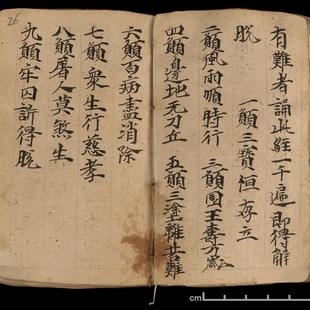 有難者誦此經一千遍即得解
脫　　一願三寶恒存立
二願風雨順時行　三願國王壽万歲
四願邊地无刀兵　五願三塗離苦難
六願百病盡消除
七願衆生行慈孝
八願屠人莫煞生
九願牢囚訴得脫
26
cm